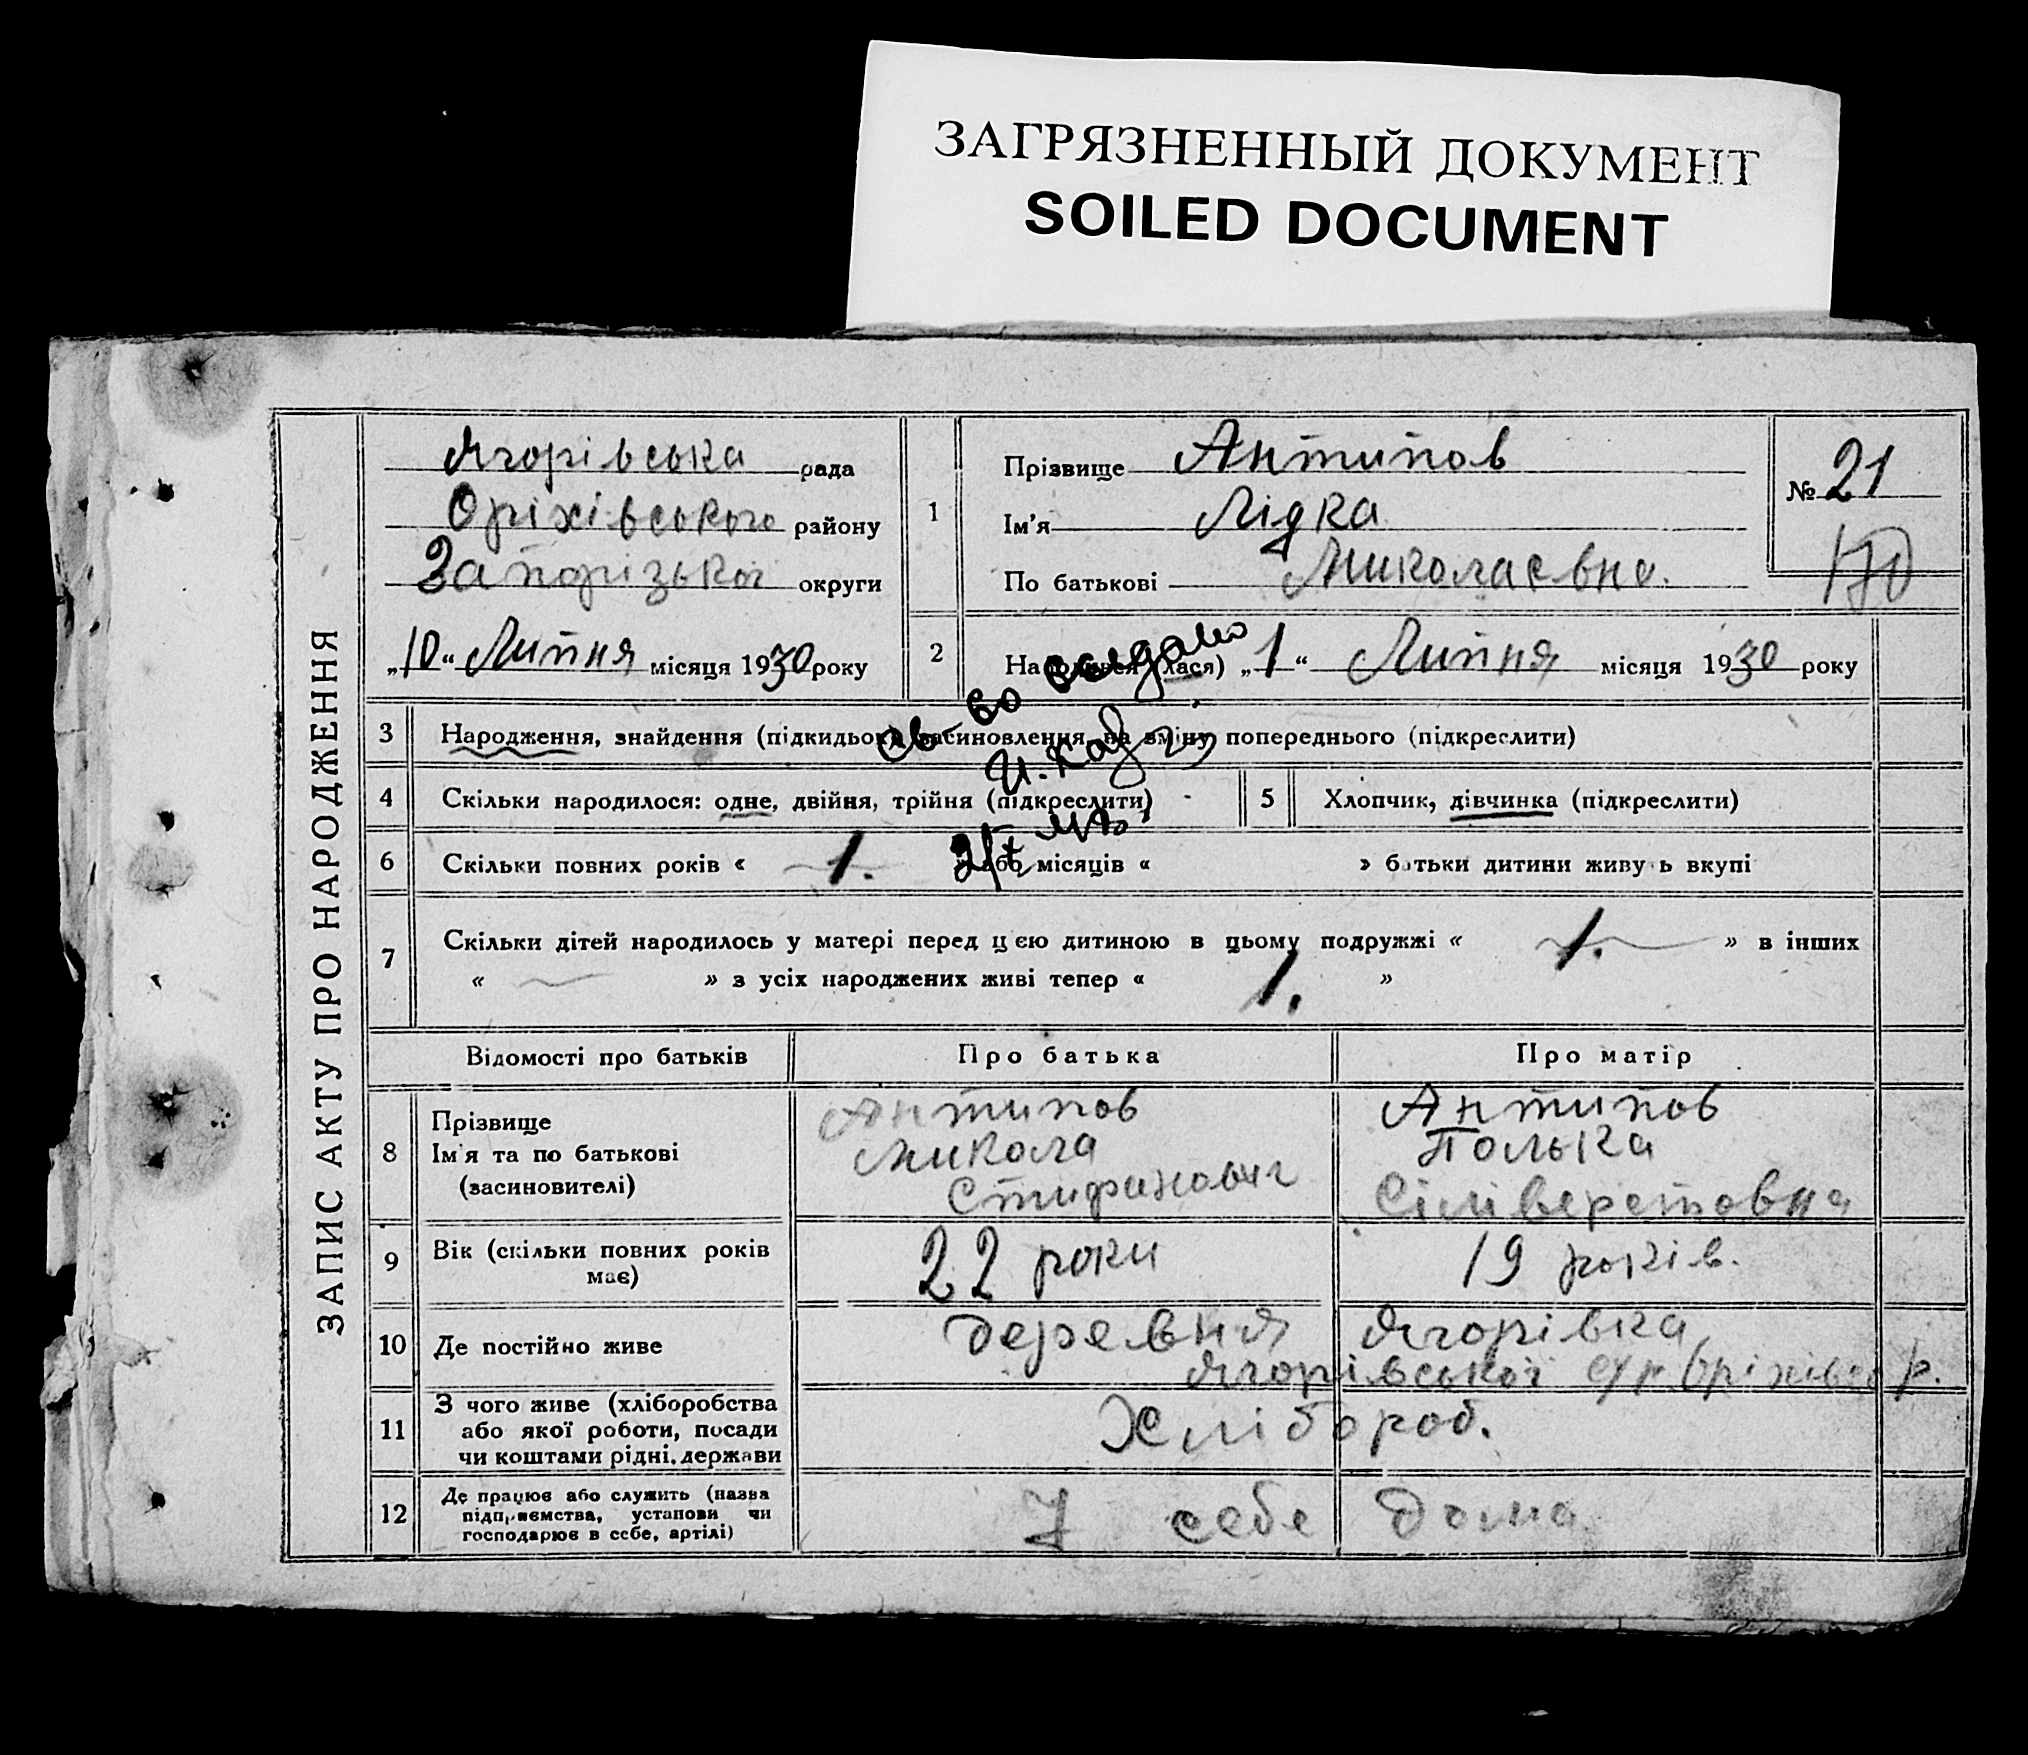 ЗАГРЯЗНЕННЫЙ ДОКУМЕНТ
SOILED DOCUMENT
ЗАПИС АКТУ ПРО НАРОДЖЕННЯ
Ягорівська рада
Оріхівського району
Запорізької округи
„10“ Липня місяця 1930 року
1
Прізвище Антипов
Ім'я Лідка
По батькові Миколаевна.
№ 21
170
2
Народився (лася) „1“ Липня місяця 1930 року
св-во выдано
3 Народження, знайдення (підкидьок), засиновлення, на зміну попереднього (підкреслити)
4 Скільки народилося: одне, двійня, трійня (підкреслити)
5 Хлопчик, дівчинка (підкреслити)
6 Скільки повних років « 1. » або місяців « » батьки дитини живуть вкупі
7 Скільки дітей народилось у матері перед цією дитиною в цьому подружжі « 1. » в інших
« » з усіх народжених живі тепер « 1. »
Відомості про батьків Про батька Про матір
8 Прізвище
Ім'я та по батькові
(засиновителі)
Антипов
Микола
Стифанович
Антипов
Полька
Сіліверстовна
9 Вік (скільки повних років
має)
22 роки
19 років.
10 Де постійно живе
деревня Ягорівка
Ягорівської с/р Оріхівск р.
11 З чого живе (хліборобства
або якої роботи, посади
чи коштами рідні, держави
Хлібороб.
12 Де працює або служить (назва
підприємства, установи чи
господарює в себе, артілі)
У себе дома